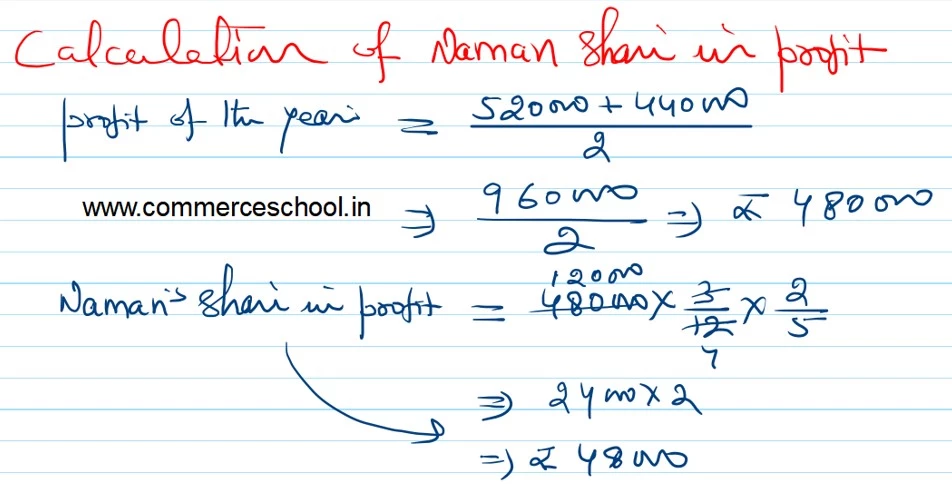 Calculation of Naman share in profit
profit of the year = 520000 + 440000 / 2
www.commerceschool.in ⇒ 960000 / 2 ⇒ ₹ 480000
Naman's share in profit = 480000 × 3/12 × 2/5
120000
4
⇒ 24000 × 2
⇒ ₹ 48000